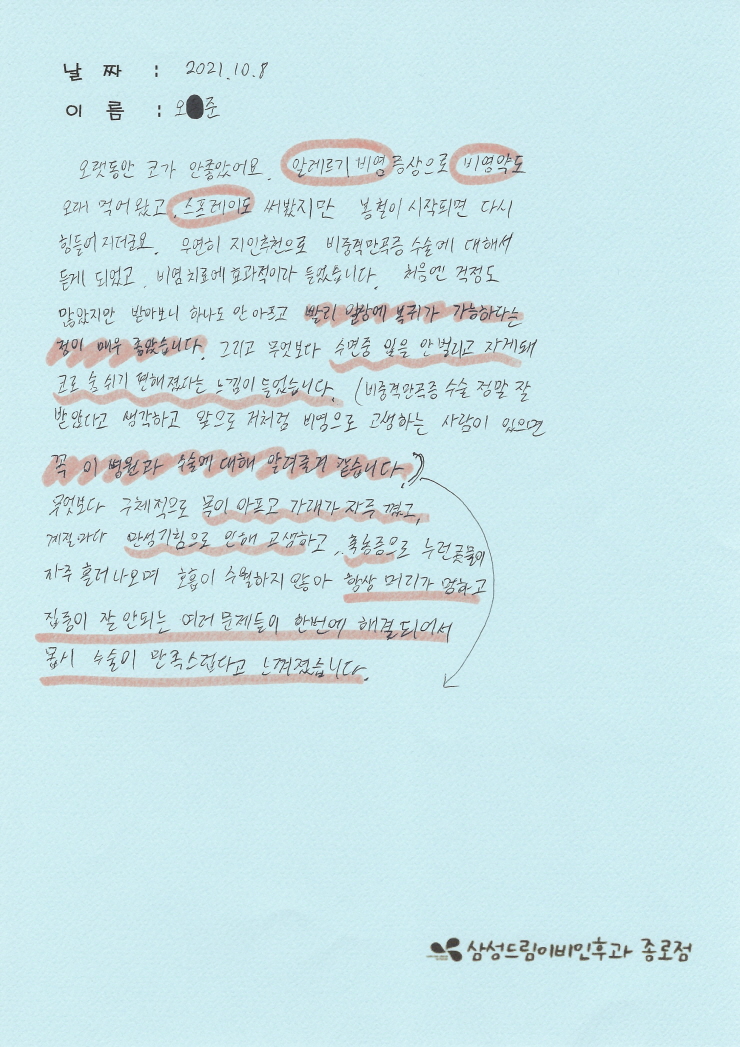 날 짜 : 2021.10.8
이 름 : 오 준
오랫동안 코가 안좋았어요. 알레르기 비염 증상으로 비염약도
오래 먹어 왔고, 스프레이도 써봤지만 봄철이 시작되면 다시
힘들어지더군요. 우연히 지인추천으로 비중격만곡증 수술에 대해서
듣게 되었고, 비염치료에 효과적이라 들었습니다. 처음엔 걱정도
많았지만 받아보니 하나도 안 아프고 빨리 일상에 복귀가 가능하다는
점이 매우 좋았습니다. 그리고 무엇보다 수면중 입을 안 벌리고 자게돼
코로 숨 쉬기 편해졌다는 느낌이 들었습니다. (비중격만곡증 수술 정말 잘
받았다고 생각하고 앞으로 저처럼 비염으로 고생하는 사람이 있으면
꼭 이 병원과 수술에 대해 알려줄거 같습니다.)
무엇보다 구체적으로 목이 아프고 가래가 자주 꼈고,
계절마다 만성기침으로 인해 고생하고, 축농증으로 누런콧물이
자주 흘러나오며 호흡이 수월하지 않아 항상 머리가 멍하고
집중이 잘 안되는 여러 문제들이 한번에 해결되어서
몹시 수술이 만족스럽다고 느껴졌습니다.
삼성드림이비인후과 종로점